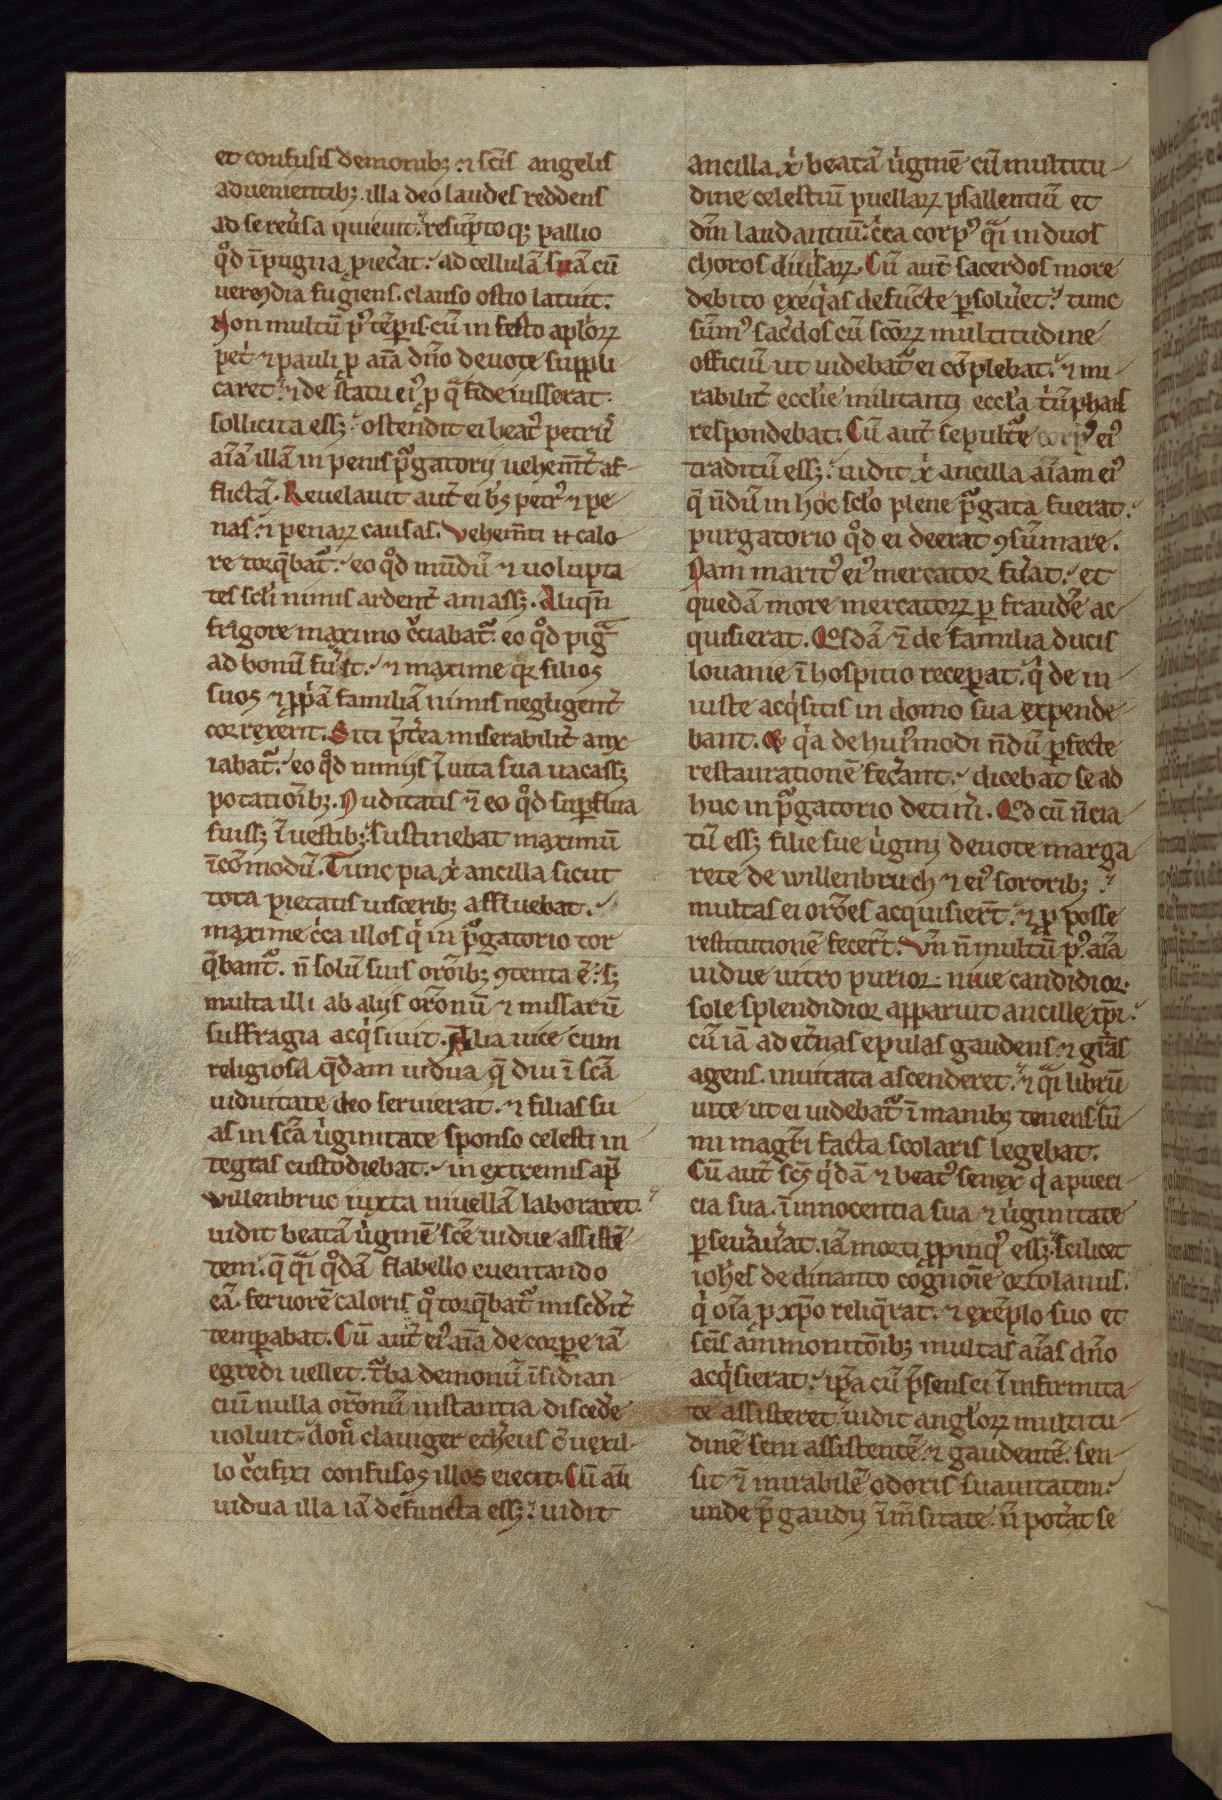 et confusis demonibꝫ ⁊ sc̄is angelis
aduenientibꝫ. illa deo laudes reddens
ad se reu̓sa quieuit. resūptoqꝫ pallio
qͦd ī pugna ꝓiec̓at. ad cellulā suā cū
uerecūdia fugiens. clauso ostio latuit.
Non multū pꝰ tēpis cū in festo apl̓oꝝ
pet̓ ⁊ pauli ꝓ aīa dn̄o deuote suppli
caret. ⁊ de statu eiꝰ ꝓ qͣ fideiusserat.
sollicita essꝫ. ostendit ei beatꝰ petrus
aīā illā in penis pͥgatorij uehem̄t̓ af
flictā. Reuelauit aut̄ ei bꝰ petrꝰ ⁊ pe
nas. ⁊ penaꝝ causas. Vehem̄ti .n. calo
re torq̄batͥ. eo qͦd mūdū ⁊ uolupta
tes sc̄li nimis ardent̓ amassꝫ. Aliqn̄
frigore maximo cͥciabatͥ. eo qͦd pigͣ
ad bonū fuit. ⁊ maxime qꝛ filios
suos ⁊ ꝓpͥā familiā nimis negligent̓
correxerit. Siti pͥt̓ea miserabilit̓ anx
iabatͥ. eo qͦd nimijs ī uita sua uacassꝫ
potatioībꝫ. Nuditatis ⁊̄ eo qͦd suꝑflua
fuissꝫ ī uestibꝫ. sustinebat maximū
īcōmodū. Tunc pia xͥ ancilla sicut
tota pietatis uisceribꝫ affluebat.
maxime cͥca illos qͥ in pͥgatorio tor
q̄bantͥ. n̄ solū suis or̄oībꝫ ꝯtenta ē. sꝫ
multa illi ab alijs or̄onū ⁊ missarū
suffragia acqͥsiuit. Alia uice cum
religiosa q̄dam uidua q̄ diu ī sc̄a
uiduitate deo seruierat. ⁊ filias su
as in sc̄a uͥginitate sponso celesti in
tegras custodiebat. in extremis apͩ
villenbruc iuxta niuellā laboraret.
uidit beatā uͥginē sc̄e uidue assistē
tem. q̄ qͣi qͦdā flabello euentando
eā. feruorē caloris qͦ torq̄batͥ misc̓dit̓
temꝑabat. Cū aut̄ eiꝰ aīa de corꝑe iā
egredi uellet. tͥba demonū īsidian
ciū nulla or̄onū instantia disced̓e
uoluit. don̄ clauiger ethe̓us c̄ uexil
lo cͥcifixi confusos illos eiecit. Cū aūt
uidua illa iā defuncta essꝫ. uidit
ancilla xͥ beatā uͥginē cū multitu
dine celestiū puellaꝝ psallentiū et
dn̄m laudantiū. cͥca corpꝰ qͣi in duos
choros diuisaꝝ. Cū aut̄ sacerdos more
debito exeqͥas defūcte ꝑsolu̓et. tunc
sūmꝰ sac̓dos cū sc̄oꝝ multitudine
officiū ut uidebatͥ ei cōplebat. ⁊ mi
rabilit̓ eccl̓ie militanti eccl̓a tͥūphās
respondebat. Cū aut̄ sepulture corpꝰ eiꝰ
traditū essꝫ. uidit xͥ ancilla aīam eiꝰ
q̄ n̄dū in hoc sc̄lo plene pͥgata fuerat.
purgatorio qͦd ei deerat ꝯsūmare.
Nam maritꝰ eiꝰ mercator fu̓at. et
quedā more mercatoꝝ ꝑ fraudē ac
quisierat. Qͦsdā ⁊̄ de familia ducis
louanie ī hospitio receꝑat. qͥ de in
iuste acqͥsitis in domo sua expende
bant. Et qͥa de huiꝰmodi n̄dū ꝑfecte
restaurationē fec̓ant. dicebat se ad
huc in pͥgatorio detin̓i. Qͦd cū n̄cia
tū essꝫ filie sue uͥgini deuote marga
rete de willenbruch ⁊ eiꝰ sororibꝫ
multas ei or̄ōes acquisier̄t. ⁊ ꝓ posse
restitutionē fecer̄t. Vn̄ n̄ multū pꝰ aīa
uidue uitro purior. niue candidior.
sole splendidior apparuit ancille xp̄i.
cū iā ad et̓nas epulas gaudens. ⁊ gr̄as
agens. inuitata ascenderet. ⁊ qͣi librū
uite ut ei uidebatͥ ī manibꝫ tenens. sū
mi magr̄i facta scolaris legebat.
Cū aut̄ sc̄s qͥdā ⁊ beatꝰ senex qͥ a pueri
cia sua. ī innocentia sua ⁊ uͥginitate
ꝑseu̓au̓at. iā morti ꝓpinqꝰ essꝫ. scilicet
ioh̄es de dinanto cognoīe ortolanus.
qͥ oīa ꝓ xp̄o reliq̄rat. ⁊ exēplo suo et
sc̄is ammonitōībꝫ multas aīas dn̄o
acqͥsierat. ip̄a cū pͥsens ei ī infirmita
te assisteret uidit angl̓oꝝ multitu
dinē seni assistentē. ⁊ gaudentē. sen
sit ⁊̄ mirabilē odoris suauitatem.
unde pͥ gaudij īm̄sitate. n̄ pot̓at se